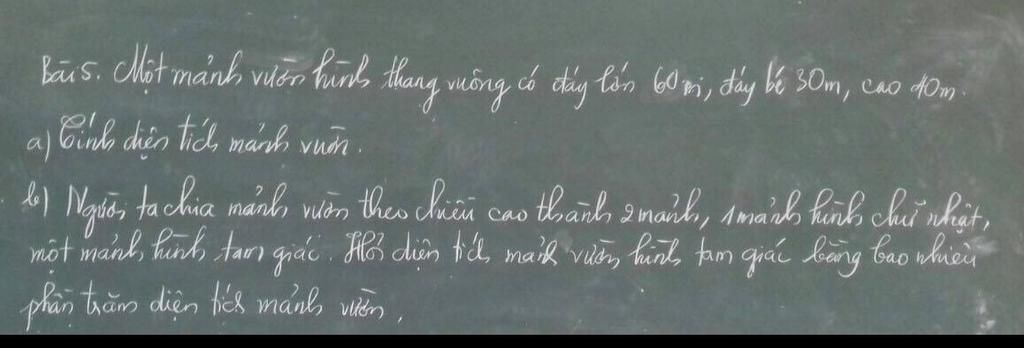 Bài 5. Một mảnh vườn hình thang vuông có đáy lớn 60m, đáy bé 30m, cao 40m.
a) Tính diện tích mảnh vườn.
b) Người ta chia mảnh vườn theo chiều cao thành 2 mảnh, 1 mảnh hình chữ nhật,
một mảnh hình tam giác. Hỏi diện tích mảnh vườn hình tam giác bằng bao nhiêu
phần trăm diện tích mảnh vườn.